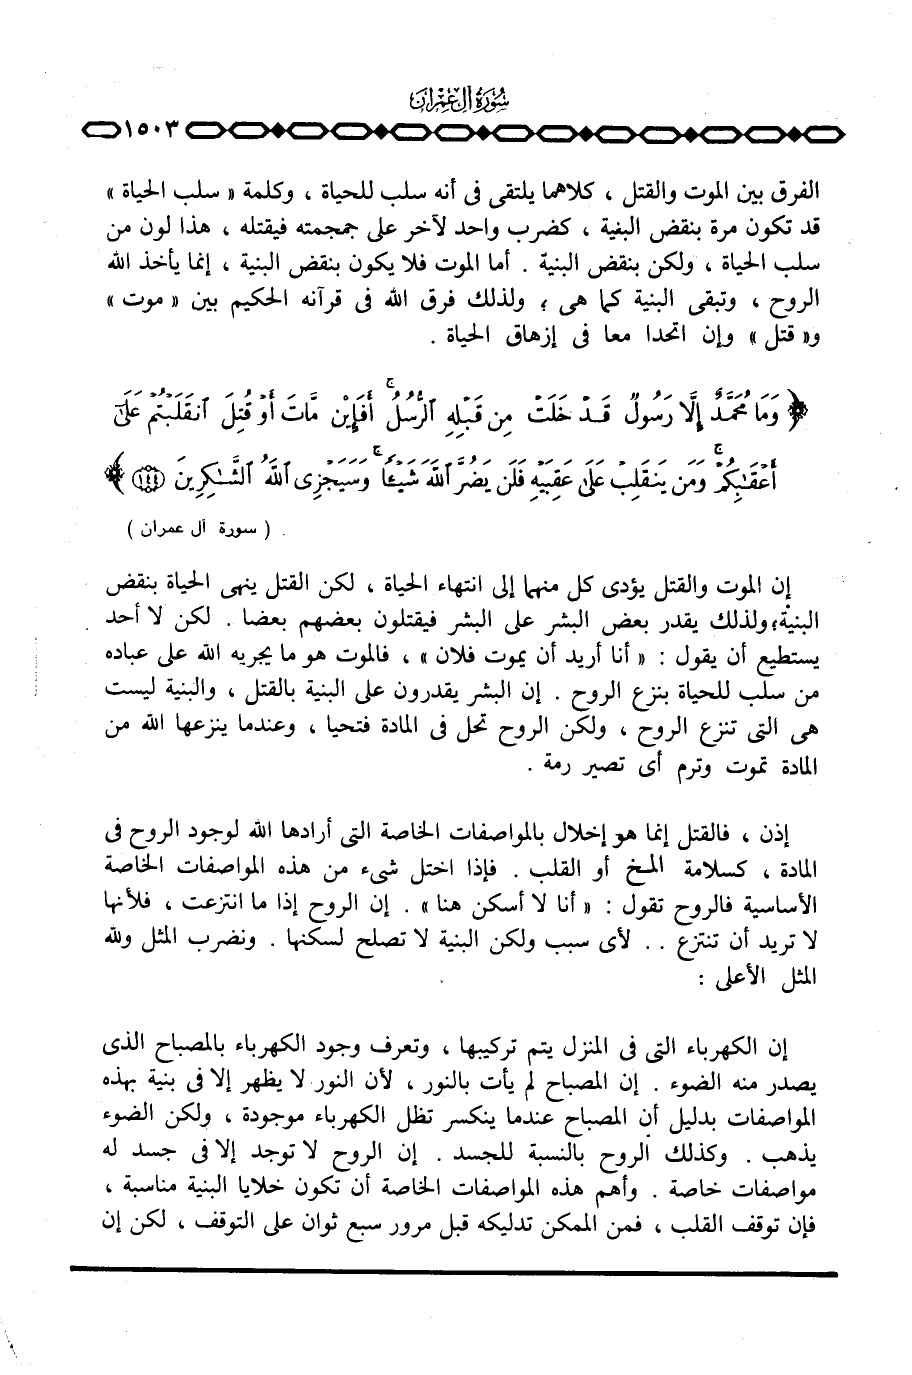 سورة آل عمران
١٥٠٣
الفرق بين الموت والقتل ، كلاهما يلتقى فى أنه سلب للحياة ، وكلمة « سلب الحياة »
قد تكون مرة بنقض البنية ، كضرب واحد لآخر على جمجمته فيقتله ، هذا لون من
سلب الحياة ، ولكن بنقض البنية . أما الموت فلا يكون بنقض البنية ، إنما يأخذ الله
الروح ، وتبقى البنية كما هى ؛ ولذلك فرق الله فى قرآنه الحكيم بين « موت »
و« قتل » وإن اتحدا معا فى إزهاق الحياة .
﴿ وَمَا مُحَمَّدٌ إِلَّا رَسُولٌ قَدْ خَلَتْ مِن قَبْلِهِ ٱلرُّسُلُ ۚ أَفَإِيْن مَّاتَ أَوْ قُتِلَ ٱنقَلَبْتُمْ عَلَىٰٓ
أَعْقَـٰبِكُمْ ۚ وَمَن يَنقَلِبْ عَلَىٰ عَقِبَيْهِ فَلَن يَضُرَّ ٱللَّهَ شَيْـًٔا ۗ وَسَيَجْزِى ٱللَّهُ ٱلشَّـٰكِرِينَ ١٤٤ ﴾
( سورة آل عمران )
إن الموت والقتل يؤدى كل منهما إلى انتهاء الحياة ، لكن القتل ينهى الحياة بنقض
البنية؛ولذلك يقدر بعض البشر على البشر فيقتلون بعضهم بعضا . لكن لا أحد
يستطيع أن يقول : « أنا أريد أن يموت فلان » ، فالموت هو ما يجريه الله على عباده
من سلب للحياة بنزع الروح . إن البشر يقدرون على البنية بالقتل ، والبنية ليست
هى التى تنزع الروح ، ولكن الروح تحل فى المادة فتحيا ، وعندما ينزعها الله من
المادة تموت وترم أى تصير رمة .
إذن ، فالقتل إنما هو إخلال بالمواصفات الخاصة التى أرادها الله لوجود الروح فى
المادة ، كسلامة المخ أو القلب . فإذا اختل شىء من هذه المواصفات الخاصة
الأساسية فالروح تقول : « أنا لا أسكن هنا » . إن الروح إذا ما انتزعت ، فلأنها
لا تريد أن تنتزع .. لأى سبب ولكن البنية لا تصلح لسكنها . ونضرب المثل ولله
المثل الأعلى :
إن الكهرباء التى فى المنزل يتم تركيبها ، وتعرف وجود الكهرباء بالمصباح الذى
يصدر منه الضوء . إن المصباح لم يأت بالنور ، لأن النور لا يظهر إلا فى بنية بهذه
المواصفات بدليل أن المصباح عندما ينكسر تظل الكهرباء موجودة ، ولكن الضوء
يذهب . وكذلك الروح بالنسبة للجسد . إن الروح لا توجد إلا فى جسد له
مواصفات خاصة . وأهم هذه المواصفات الخاصة أن تكون خلايا البنية مناسبة ،
فإن توقف القلب ، فمن الممكن تدليكه قبل مرور سبع ثوان على التوقف ، لكن إن